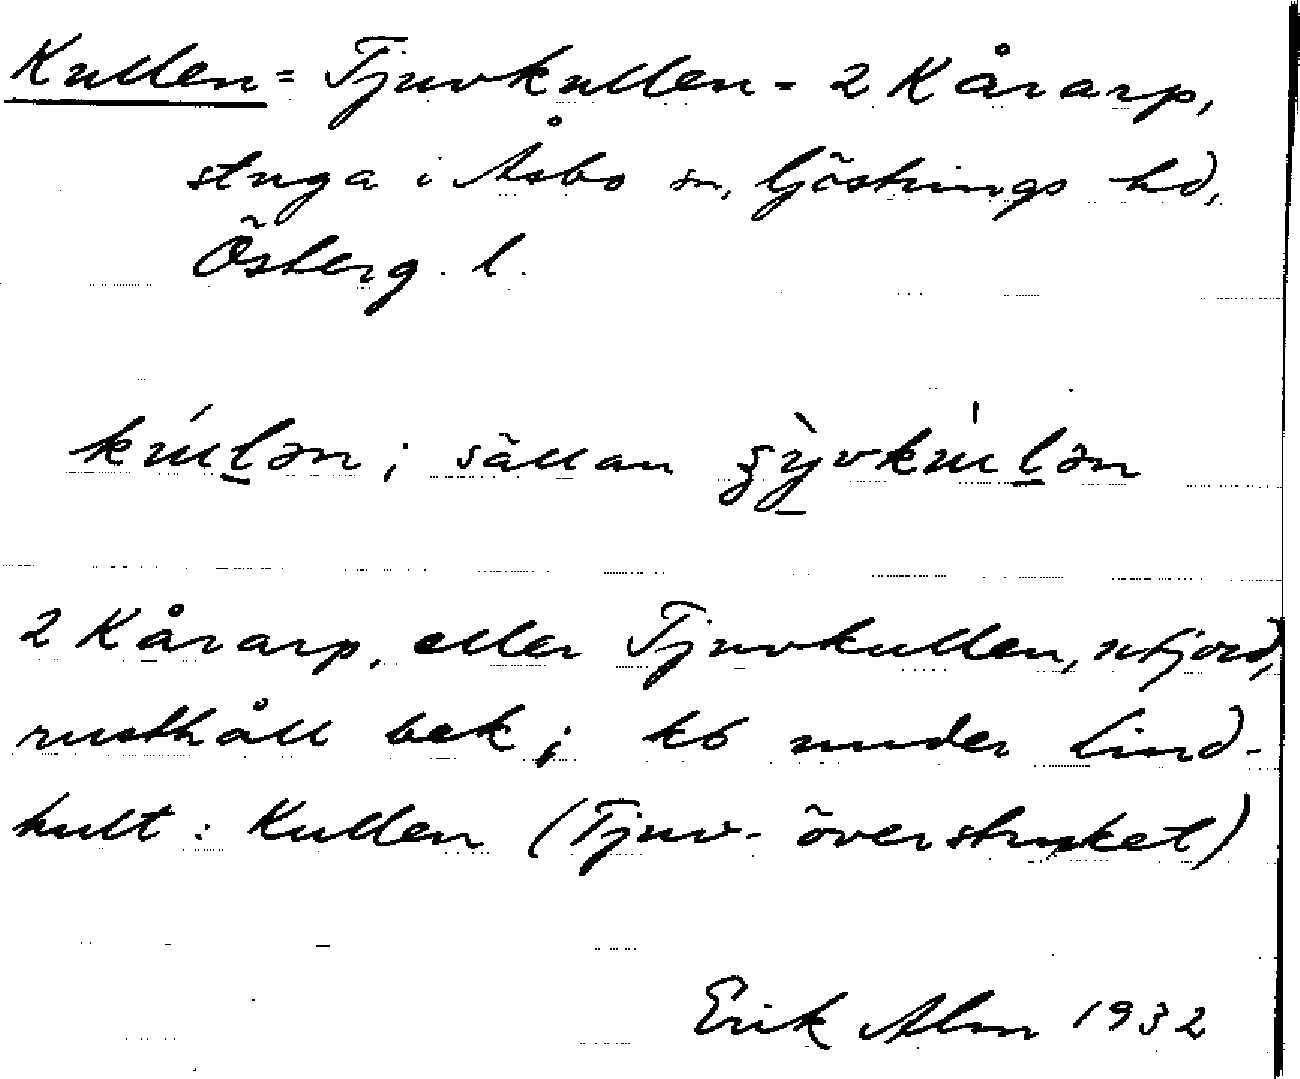 Kullen = Tjuvkullen = 2 Kårarp,
stuga i Åsbo sn, Göstrings hd,
Österg. l.
kúlən; sällan ʂỳvkúlən
2 Kårarp, eller Tjuvkullen, utjord,
rusthåll bek; kb under Lind-
hult: Kullen (Tjuv- överstruket)
Erik Alm 1932